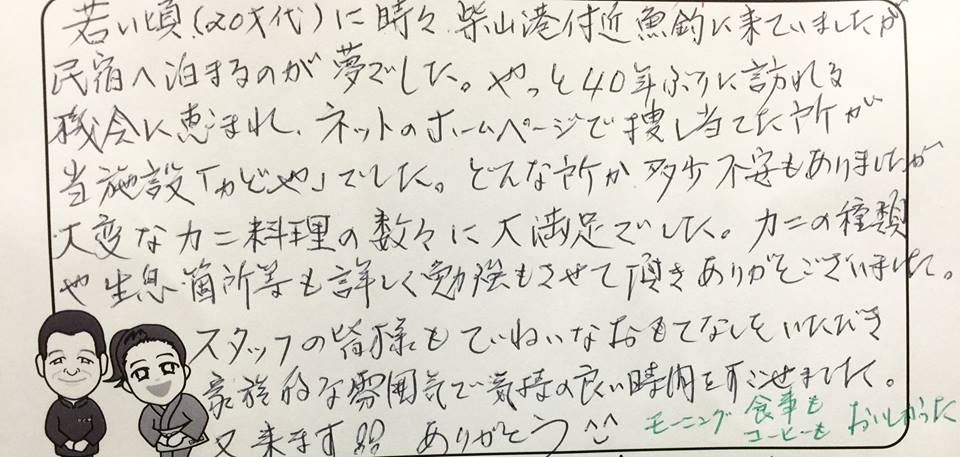 若い頃(20才代)に時々柴山港付近魚釣に来ていましたが
民宿へ泊まるのが夢でした。やっと40年ぶりに訪れる
機会に恵まれ、ネットのホームページで捜し当てた所が
当施設「かどや」でした。どんな所か多少不安もありましたが
大変なカニ料理の数々に大満足でした。カニの種類
や生息箇所等も詳しく勉強もさせて頂きありがとうございました。
スタッフの皆様もていねいなおもてなしをいただき
家族的な雰囲気で気持の良い時間をすごせました。
又来ます!! ありがとう^^
モーニング 食事も
コーヒーも おいしかった